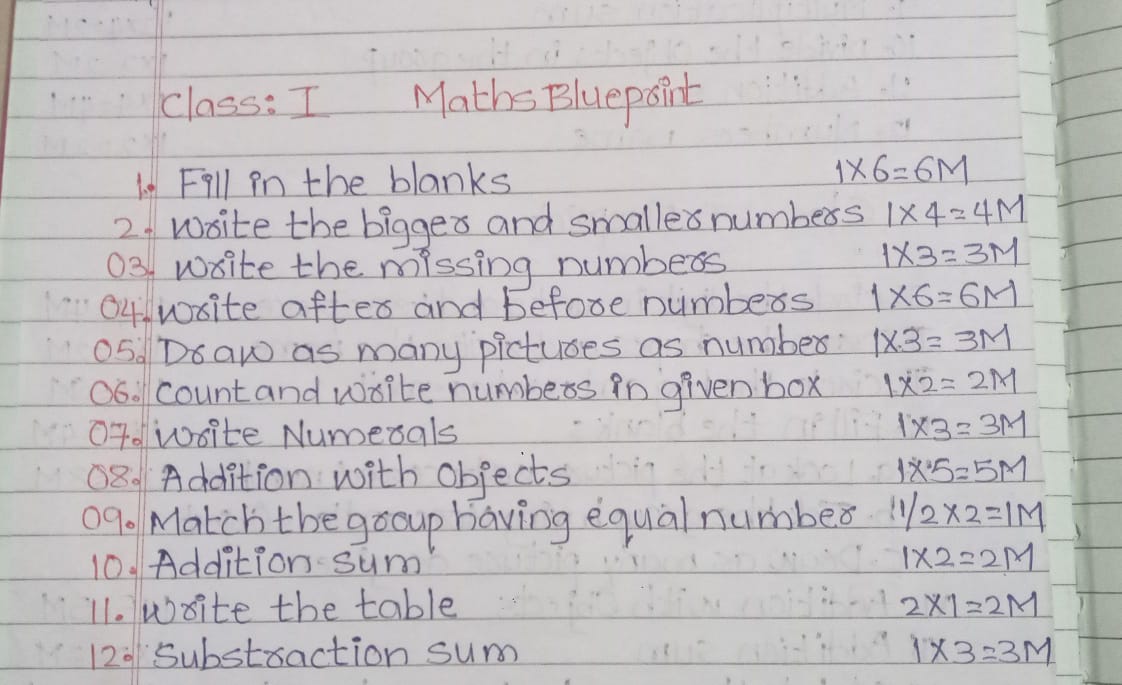 Class: I Maths Blueprint
1. Fill in the blanks 1x6=6M
2. Write the bigger and smaller numbers 1x4=4M
03. Write the missing numbers 1x3=3M
04. Write after and before numbers 1x6=6M
05. Draw as many pictures as number 1x3=3M
06. Count and write numbers in given box 1x2=2M
07. Write Numerals 1x3=3M
08. Addition with Objects 1x5=5M
09. Match the group having equal number 1/2x2=1M
10. Addition sum 1x2=2M
11. Write the table 2x1=2M
12. Substraction sum 1x3=3M